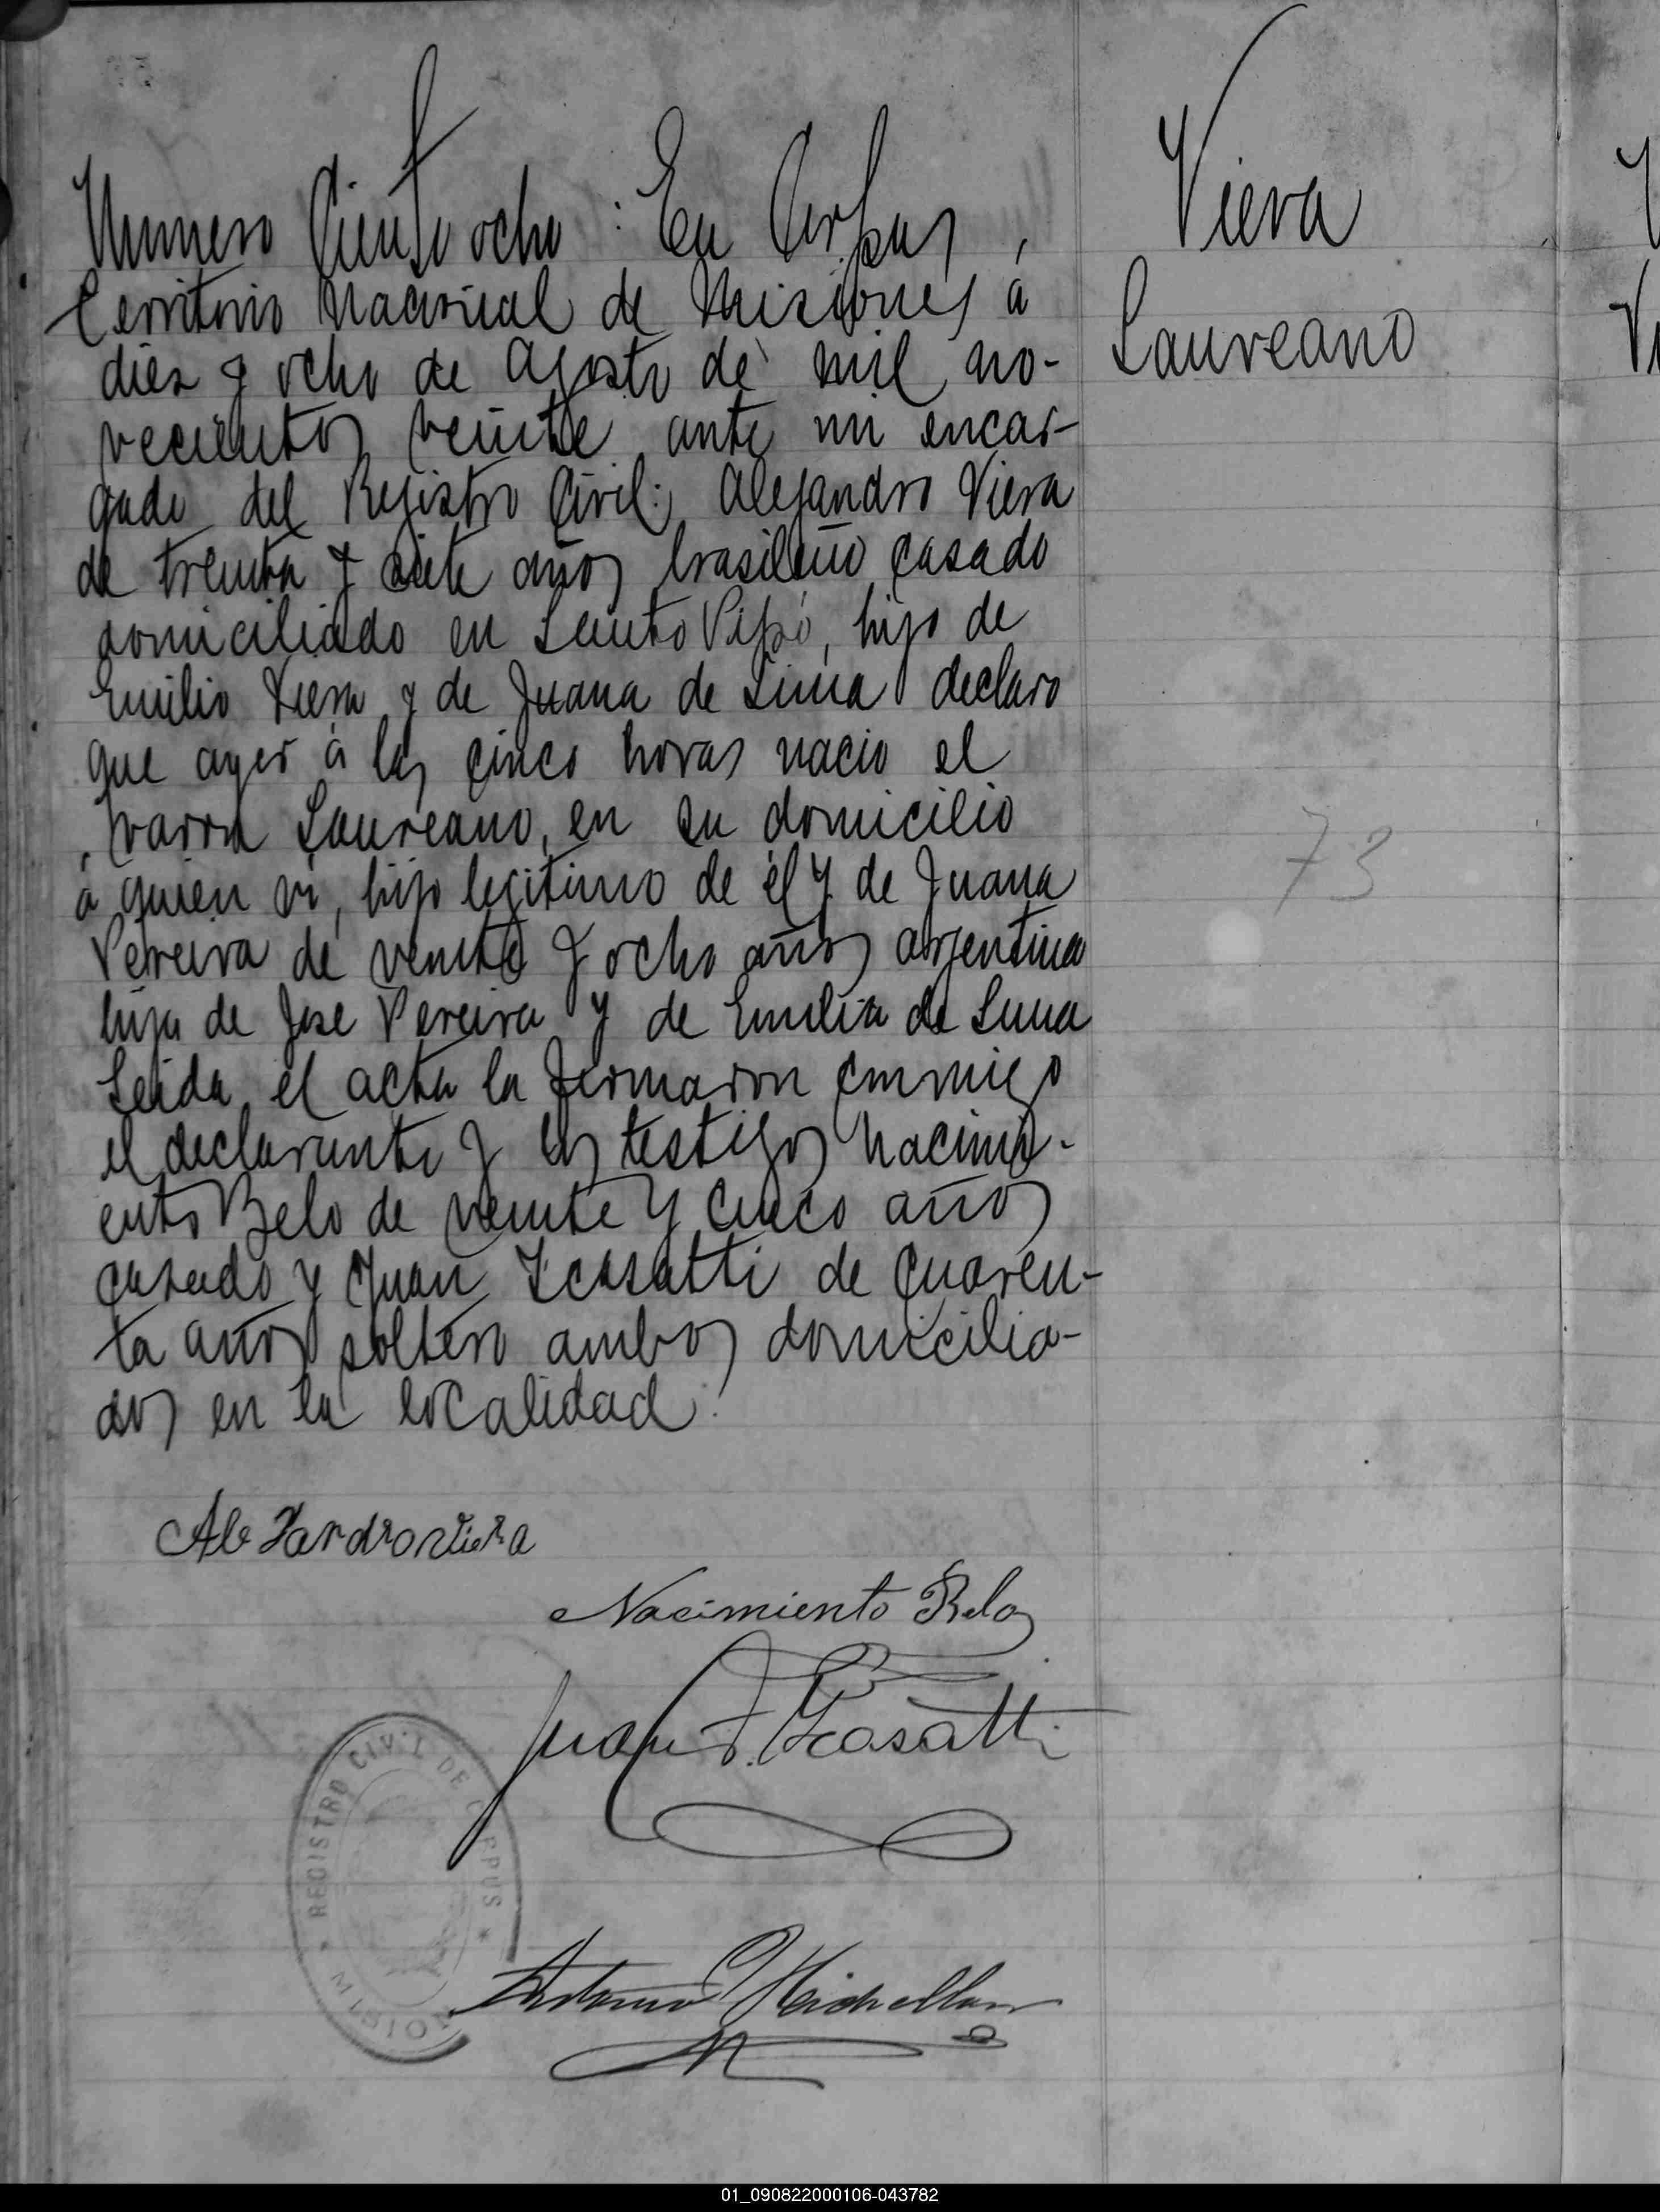 Numero Ciento ocho : En Corpus,
Territorio Nacional de Misiones á
diez y ocho de Agosto de mil no-
vecientos veinte ante mi encar-
gado del Registro Civil: Alejandro Viera
de treinta y siete años brasileño casado
domiciliado en Santo Pipó, hijo de
Emilio Viera y de Juana de Lima declaro
que ayer á las cinco horas nacio el
varon Laureano, en su domicilio
á quien vi, hijo legitimo de él y de Juana
Pereira de veinte y ocho años argentina
hija de Jose Pereira y de Emilia de Luna
Leida el acta la firmaron conmigo
el declarante y los testigos Nacimi-
ento Belo de veinte y cinco años
casado y Juan Icasatti de cuaren-
ta años soltero ambos domicilia-
dos en la localidad.
Viera
Laureano
73
Nacimiento Belo
Juan Icasatti
Antonio
REGISTRO CIVIL DE CORPUS
01_090822000106-043782